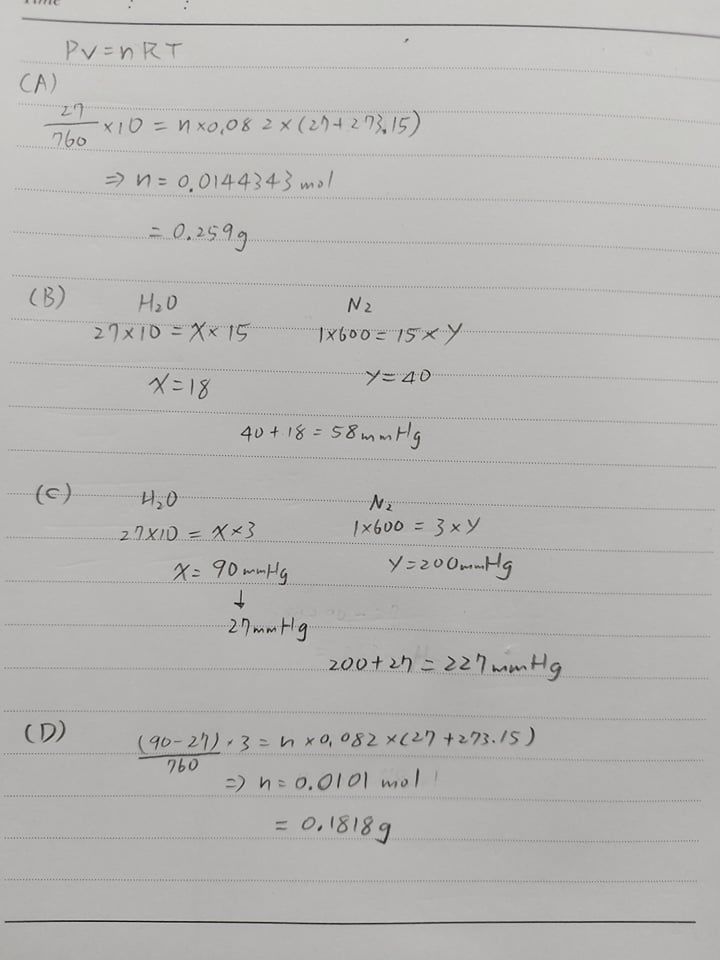 Time : :
PV=nRT
(A)
27/760 ×10 = n×0.082×(27+273.15)
⇒ n = 0.0144343 mol
= 0.259g
(B) H2O N2
27×10 = X×15 1×600 = 15×Y
X=18 Y=40
40+18=58mmHg
(C) H2O N2
27×10 = X×3 1×600 = 3×Y
X= 90mmHg Y=200mmHg
↓
27mmHg
200+27=227mmHg
(D) (90-27)/760 ×3 = n×0.082×(27+273.15)
⇒ n=0.0101 mol
= 0.1818g